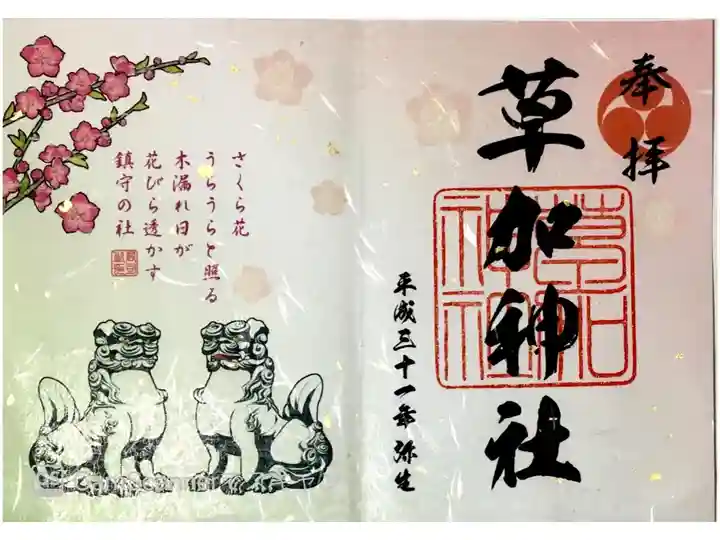 奉拝
草加神社
草加神社
平成三十一年 弥生
さくら花
うらうらと照る
木漏れ日が
花びら透かす
鎮守の社